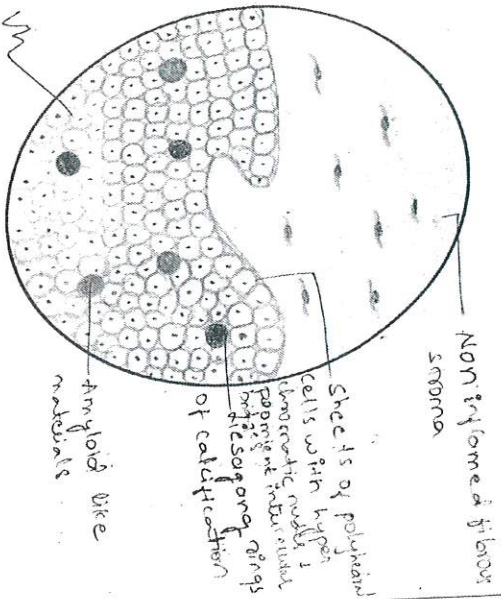 Non inflamed fibrous
stroma
Sheets of polyhedral
cells with hyper
chromatic nuclei &
prominent intercellular
bridges
Liesegang rings
of calcification
Amyloid like
materials